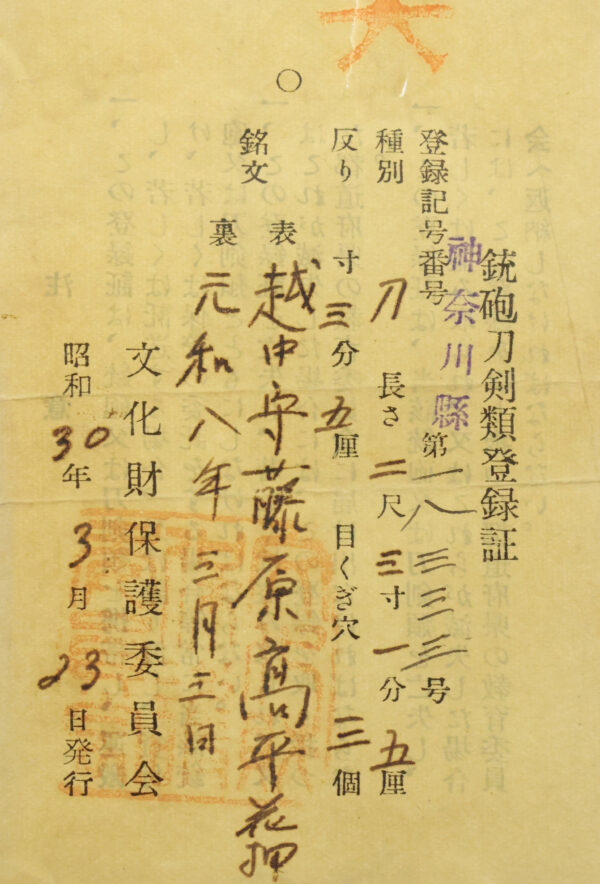 銃砲刀剣類登録証
登録記号番号 神奈川縣 第一八三三三号
種別 刀 長さ 二尺三寸一分五厘
反り 寸三分五厘 目くぎ穴 三個
銘文 表 越中守藤原髙平 花押
裏 元和八年三月三日
文化財保護委員会
昭和30年3月23日発行